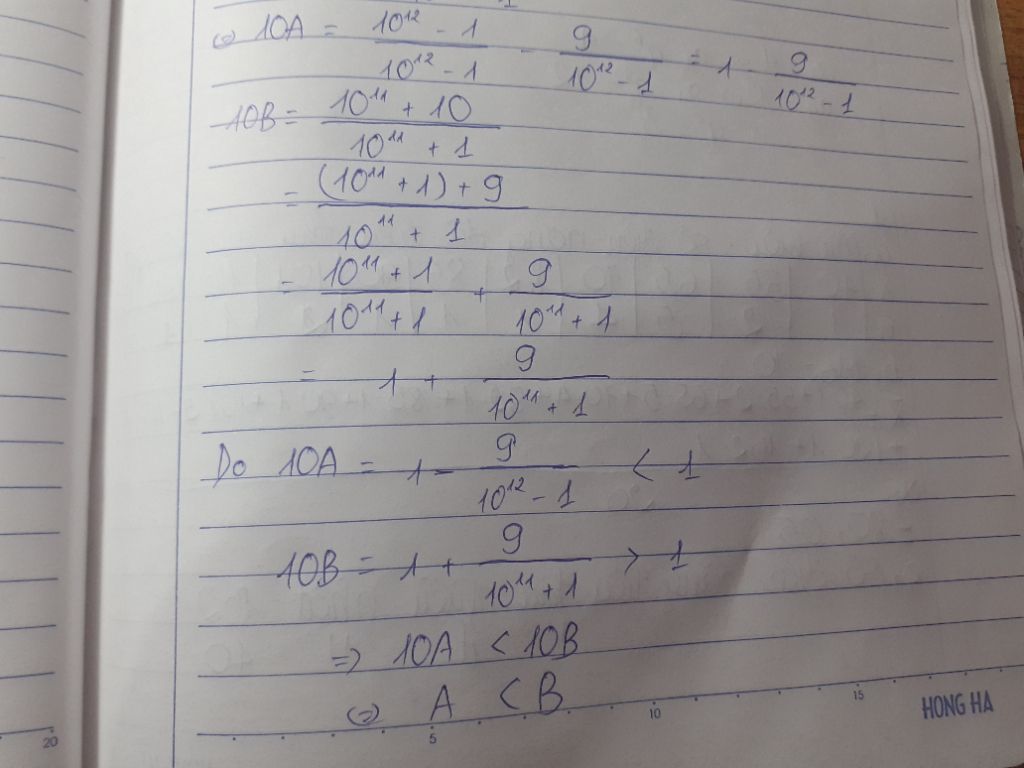 ⇔ 10A = \frac{10^{12} - 1}{10^{12} - 1} - \frac{9}{10^{12} - 1} = 1 - \frac{9}{10^{12} - 1}
10B = \frac{10^{11} + 10}{10^{11} + 1}
= \frac{(10^{11} + 1) + 9}{10^{11} + 1}
= \frac{10^{11} + 1}{10^{11} + 1} + \frac{9}{10^{11} + 1}
= 1 + \frac{9}{10^{11} + 1}
Do 10A = 1 - \frac{9}{10^{12} - 1} < 1
10B = 1 + \frac{9}{10^{11} + 1} > 1
=> 10A < 10B
⇔ A < B
20 5 10 15 HONG HA